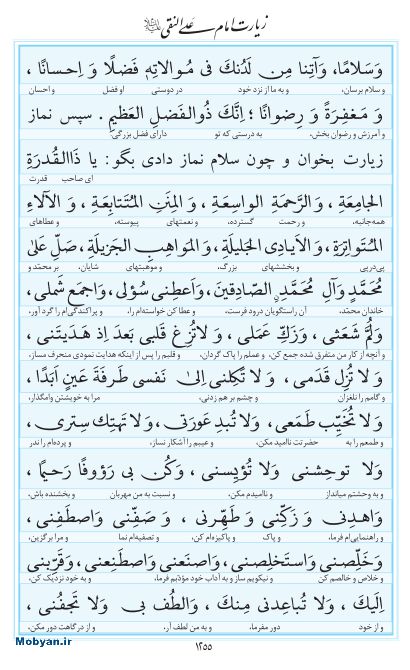 زیارت امام علی النقی علیه‌السلام
وَسَلامًا، وَآتِنا مِن لَدُنكَ فى مُوالاتِهِ فَضلًا وَ إِحسانًا ،
و سلام برسان، و به ما از نزد خود در دوستى او فضل و احسان
وَ مَغفِرَةً وَ رِضوانًا ؛ اِنَّكَ ذُوالفَضلِ العَظيمِ . سپس نماز
و آمرزش و رضوان بخش، به درستى كه تو داراى فضل بزرگى.
زيارت بخوان و چون سلام نماز دادى بگو: يا ذَاالقُدرَةِ
اى صاحب قدرت
الجامِعَةِ ، وَ الرَّحمَةِ الواسِعَةِ ، وَ المِنَنِ المُتَتابِعَةِ ، وَ الآلاءِ
همه‌جانبه، و رحمت گسترده، و نعمتهاى پيوسته، و عطاهاى
المُتَواتِرَةِ، وَ الاَيادِى الجَليلَةِ، وَ المَواهِبِ الجَزيلَةِ، صَلِّ عَلىٰ
پى‌درپى و بخششهاى بزرگ، و موهبتهاى شايان، بر محمّد و
مُحَمَّدٍ وَآلِ مُحَمَّدٍ الصّادِقينَ، وَاَعطِنى سُؤلى، وَاجمَع شَملى،
خاندان محمّد، آن راستگويان درود فرست، و عطا كن خواسته‌ام را، و پراكندگى‌ام را گرد آور،
وَلُمَّ شَعَثى ، وَزَكِّ عَمَلى ، وَ لاتُزِغ قَلبى بَعدَ اِذ هَدَيتَنى ،
و آنچه از كار من متفرق شده جمع كن، و عملم را پاک گردان، و قلبم را پس از اينكه هدايت نمودى منحرف مساز،
وَ لا تُزِلَّ قَدَمى ، وَ لا تَكِلنى اِلىٰ نَفسى طَرفَةَ عَينٍ اَبَدًا ،
و گامم را نلغزان و چشم بر هم زدنى، مرا به خويشتن وامگذار،
وَ لا تُخَيِّب طَمَعى ، وَلا تُبدِ عَورَتى، وَ لا تَهتِك سِترى ،
و طمعم را به حضرتت نااميد مكن، و عيبم را آشكار نساز، و پرده‌ام را ندر
وَلا توحِشنى وَ لا تُؤيِسنى ، وَكُن بى رَؤوفًا رَحيمًا ،
و به وحشتم مينداز و نااميدم مكن، و نسبت به من مهربان و بخشنده باش،
وَاهدِنى وَ زَكِّنى وَ طَهِّرنى ، وَ صَفِّنى وَاصطَفِنى ،
و راهنمايى‌ام فرما، و پاک و پاكيزه‌ام كن، و تصفيه‌ام نما و مرا برگزين،
وَخَلِّصنى وَاستَخلِصنى، وَاصنَعنى وَاصطَنِعنى، وَقَرِّبنى
و خلاص و خالصم كن و نيكويم ساز و به آداب خود مؤدّبم فرما، و به خود نزديک كن،
اِلَيكَ ، وَ لا تُباعِدنى مِنكَ ، وَالطُف بى وَلا تَجفُنى ،
و از خود دور مفرما، و به من لطف آر، و از درگاهت دور مكن،
١٢٥٥
Mobyan.ir